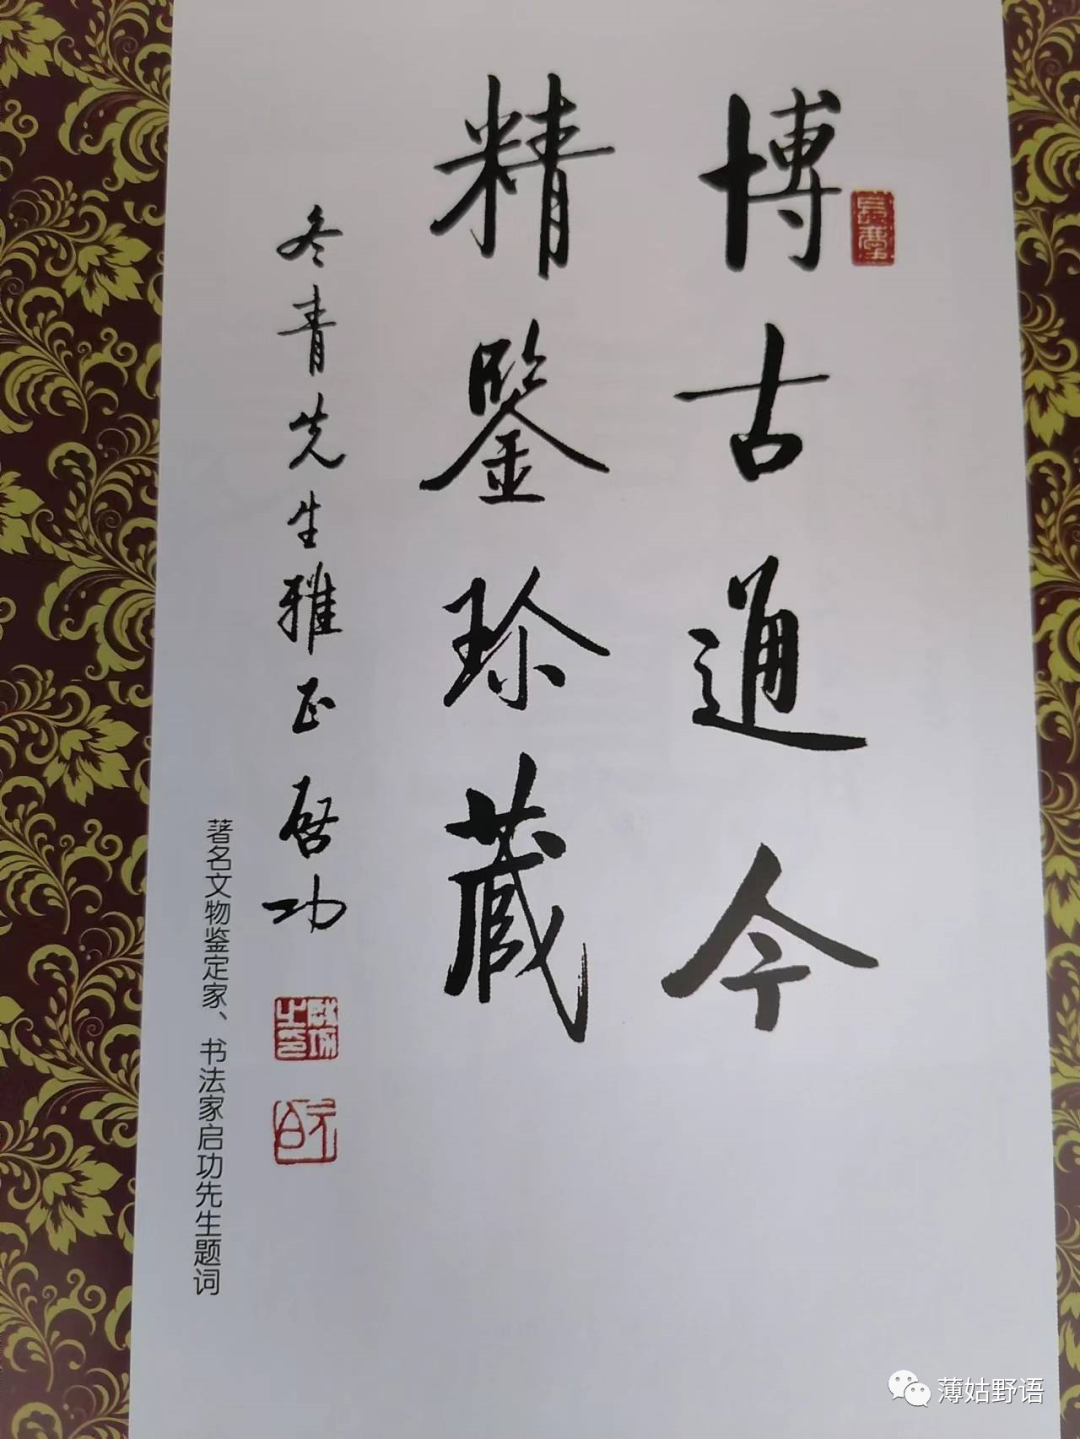 博古通今
精鑒珍藏
冬青先生雅正 啓功
著名文物鉴定家、书法家启功先生题词
薄姑野语